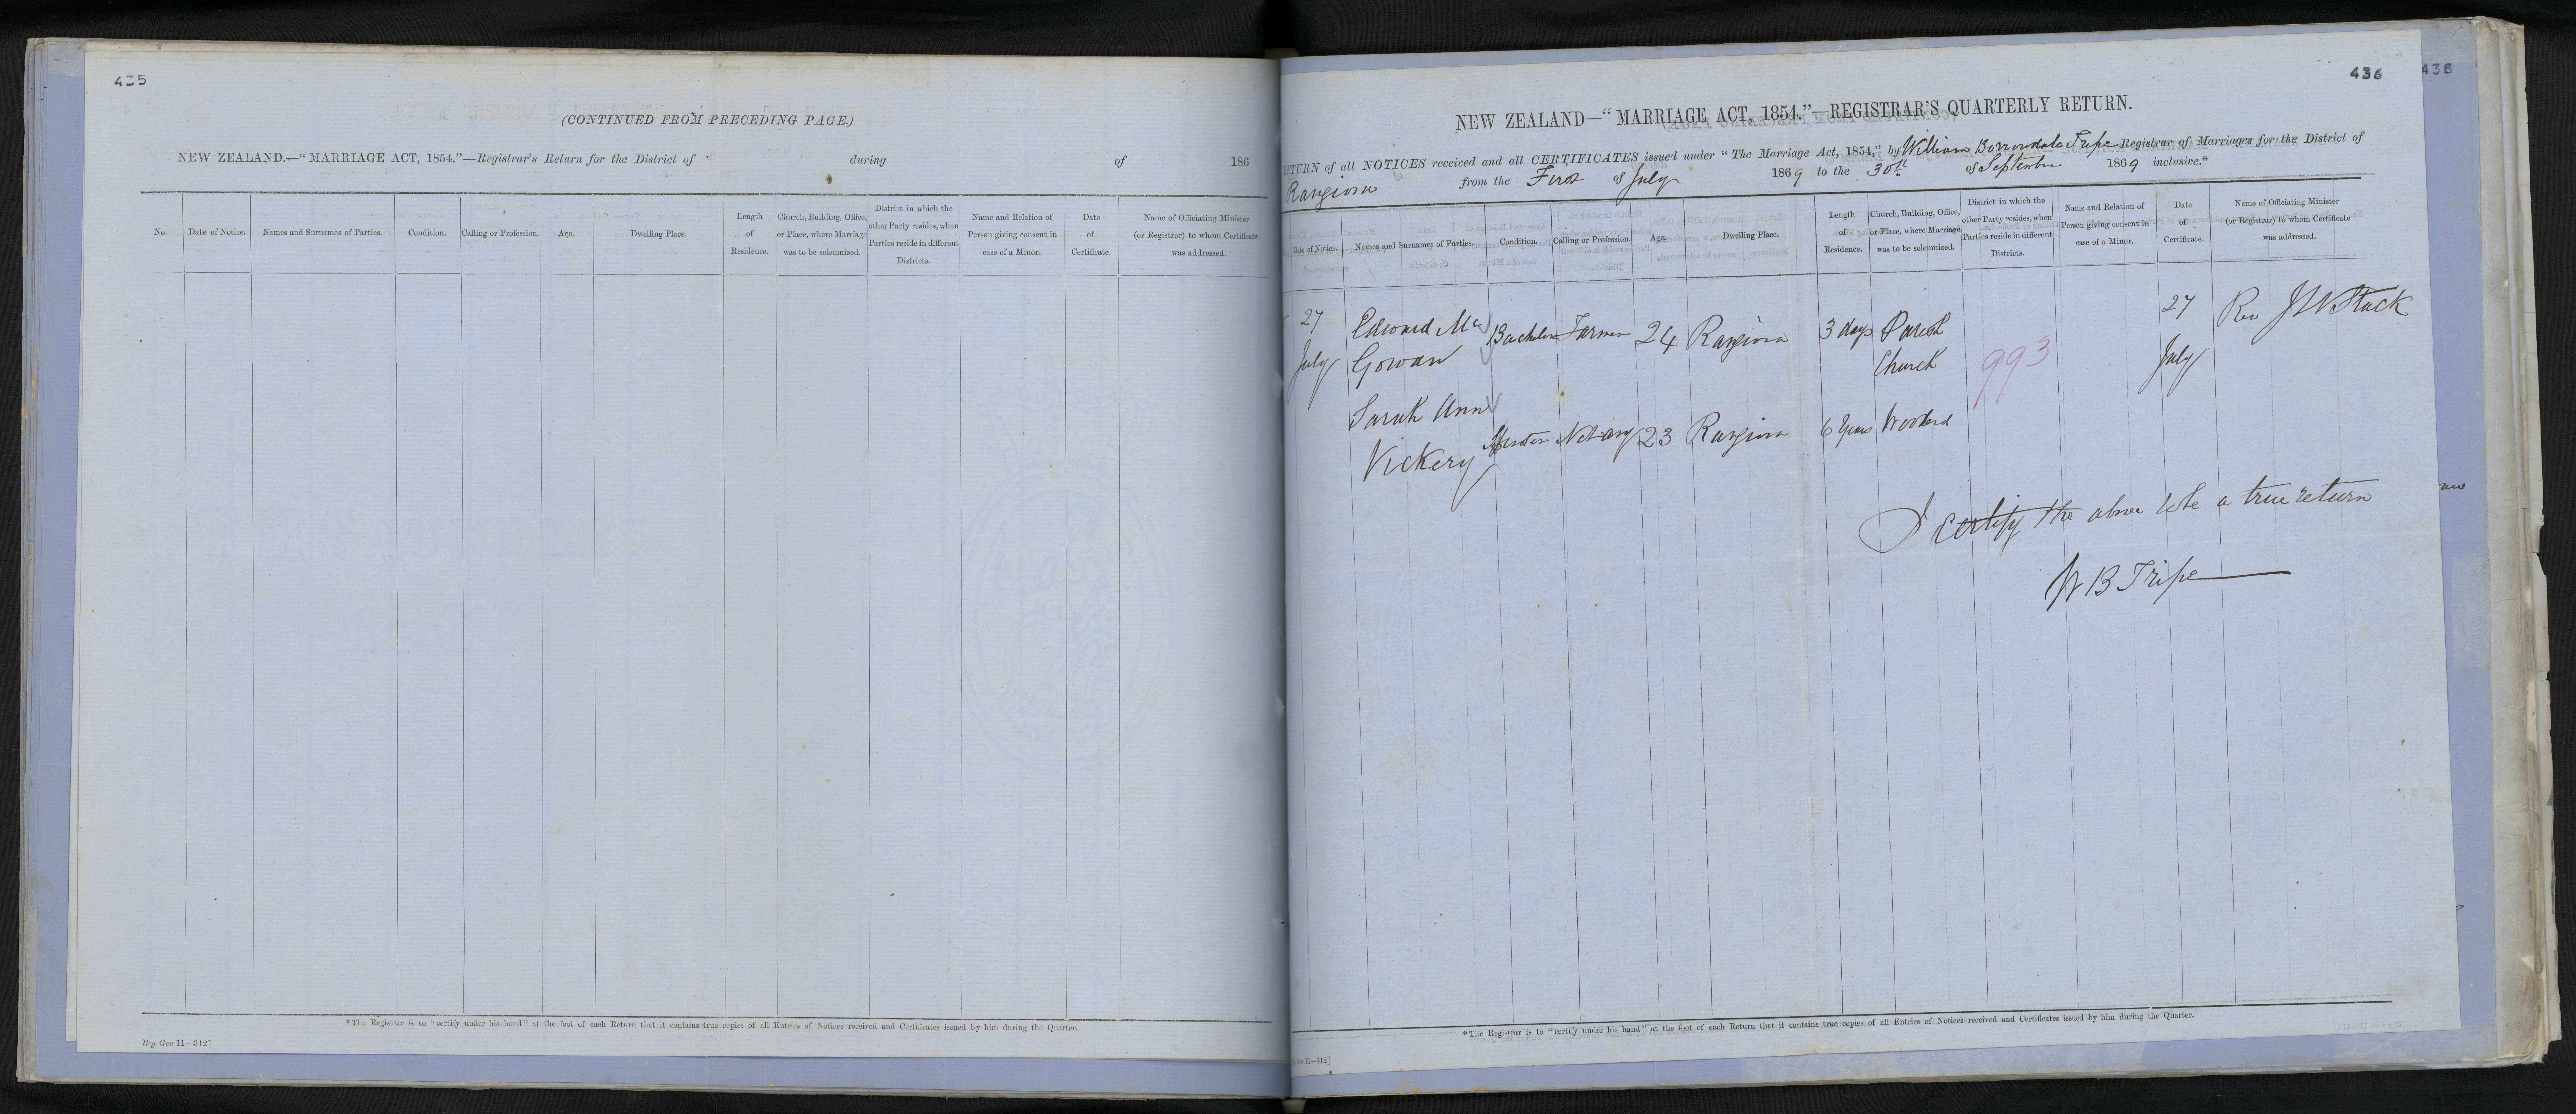 435
(CONTINUED FROM PRECEDING PAGE.)
NEW ZEALAND.—"MARRIAGE ACT, 1854."—Registrar's Return for the District of during of 186
No.
Date of Notice.
Names and Surnames of Parties.
Condition.
Calling or Profession.
Age.
Dwelling Place.
Length
of
Residence.
Church, Building, Office,
or Place, where Marriage
was to be solemnized.
District in which the
other Party resides, when
Parties reside in different
Districts.
Name and Relation of
Person giving consent in
case of a Minor.
Date
of
Certificate.
Name of Officiating Minister
(or Registrar) to whom Certificate
was addressed.
*The Registrar is to "certify under his hand" at the foot of each Return that it contains true copies of all Entries of Notices received and Certificates issued by him during the Quarter.
Reg Gen 11—312]
436
438
NEW ZEALAND—"MARRIAGE ACT, 1854."—REGISTRAR'S QUARTERLY RETURN.
RETURN of all NOTICES received and all CERTIFICATES issued under "The Marriage Act, 1854," by William Borrowdale Tripe Registrar of Marriages for the District of
Rangiora from the First of July 1869 to the 30th of September 1869 inclusive.*
Date of Notice.
Names and Surnames of Parties.
Condition.
Calling or Profession.
Age.
Dwelling Place.
Length
of
Residence.
Church, Building, Office,
or Place, where Marriage
was to be solemnized.
District in which the
other Party resides, when
Parties reside in different
Districts.
Name and Relation of
Person giving consent in
case of a Minor.
Date
of
Certificate.
Name of Officiating Minister
(or Registrar) to whom Certificate
was addressed.
27 Edward Mc Bachelor Farmer 24 Rangiora 3 days Parish 27 Rev J W Stack
July Gowan Church 993 July
Sarah Ann
Vickery Spinster Not any 23 Rangiora 6 Years Woodend
I certify the above to be a true return
W B Tripe
*The Registrar is to "certify under his hand" at the foot of each Return that it contains true copies of all Entries of Notices received and Certificates issued by him during the Quarter.
Gen 11—312]